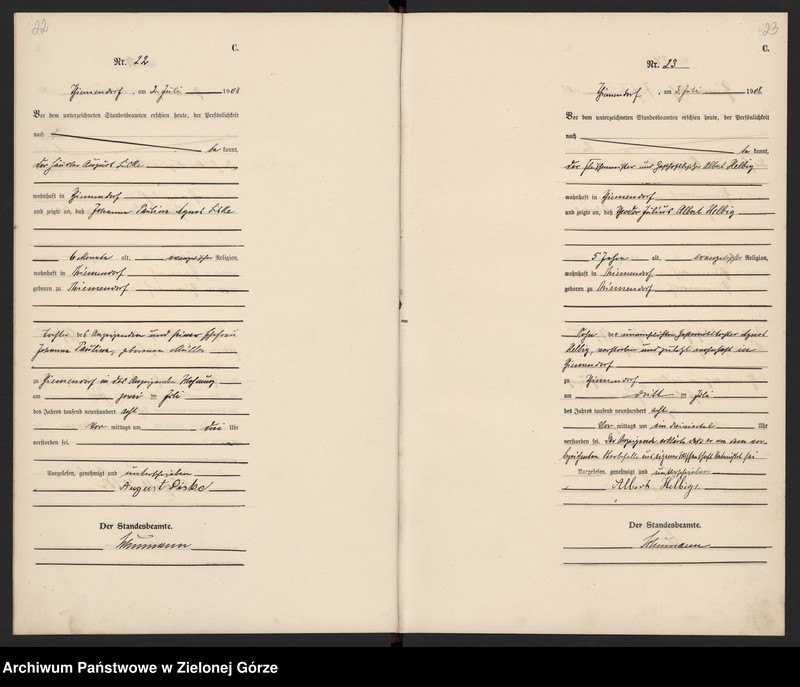 22
C.
Nr. 22
Ziemendorf, am 2. Juli 1908
Vor dem unterzeichneten Standesbeamten erschien heute, der Persönlichkeit
nach
be kannt,
der Häusler August Liske
wohnhaft in Ziemendorf
und zeigte an, daß Johanne Pauline Agnes Liske
6 Monate alt, evangelischer Religion,
wohnhaft in Ziemendorf
geboren zu Ziemendorf
Tochter des Anzeigenden und seiner Ehefrau
Johanne Pauline, geborene Müller
zu Ziemendorf in des Anzeigenden Wohnung
am zwei ten Juli
des Jahres tausend neunhundert acht
Vor mittags um drei Uhr
verstorben sei.
Vorgelesen, genehmigt und unterschrieben
August Liske
Der Standesbeamte.
23
C.
Nr. 23
Ziemendorf, am 5. Juli 1908
Vor dem unterzeichneten Standesbeamten erschien heute, der Persönlichkeit
nach
be kannt,
der und Albert Helbig
wohnhaft in Ziemendorf
und zeigte an, daß Theodor Julius Albert Helbig
5 Jahre alt, evangelischer Religion,
wohnhaft in Ziemendorf
geboren zu Ziemendorf
Sohn der unverehelichten Agnes
Helbig, verstorben und zuletzt wohnhaft in
Ziemendorf
zu Ziemendorf
am dritt en Juli
des Jahres tausend neunhundert acht
Vor mittags um ein dreiviertel Uhr
verstorben sei. Der Anzeigende erklärte daß er von dem vor-
bezeichneten Sterbefalle aus eigener Wissenschaft unterrichtet sei
Vorgelesen, genehmigt und unterschrieben
Albert Helbig.
Der Standesbeamte.
Archiwum Państwowe w Zielonej Górze